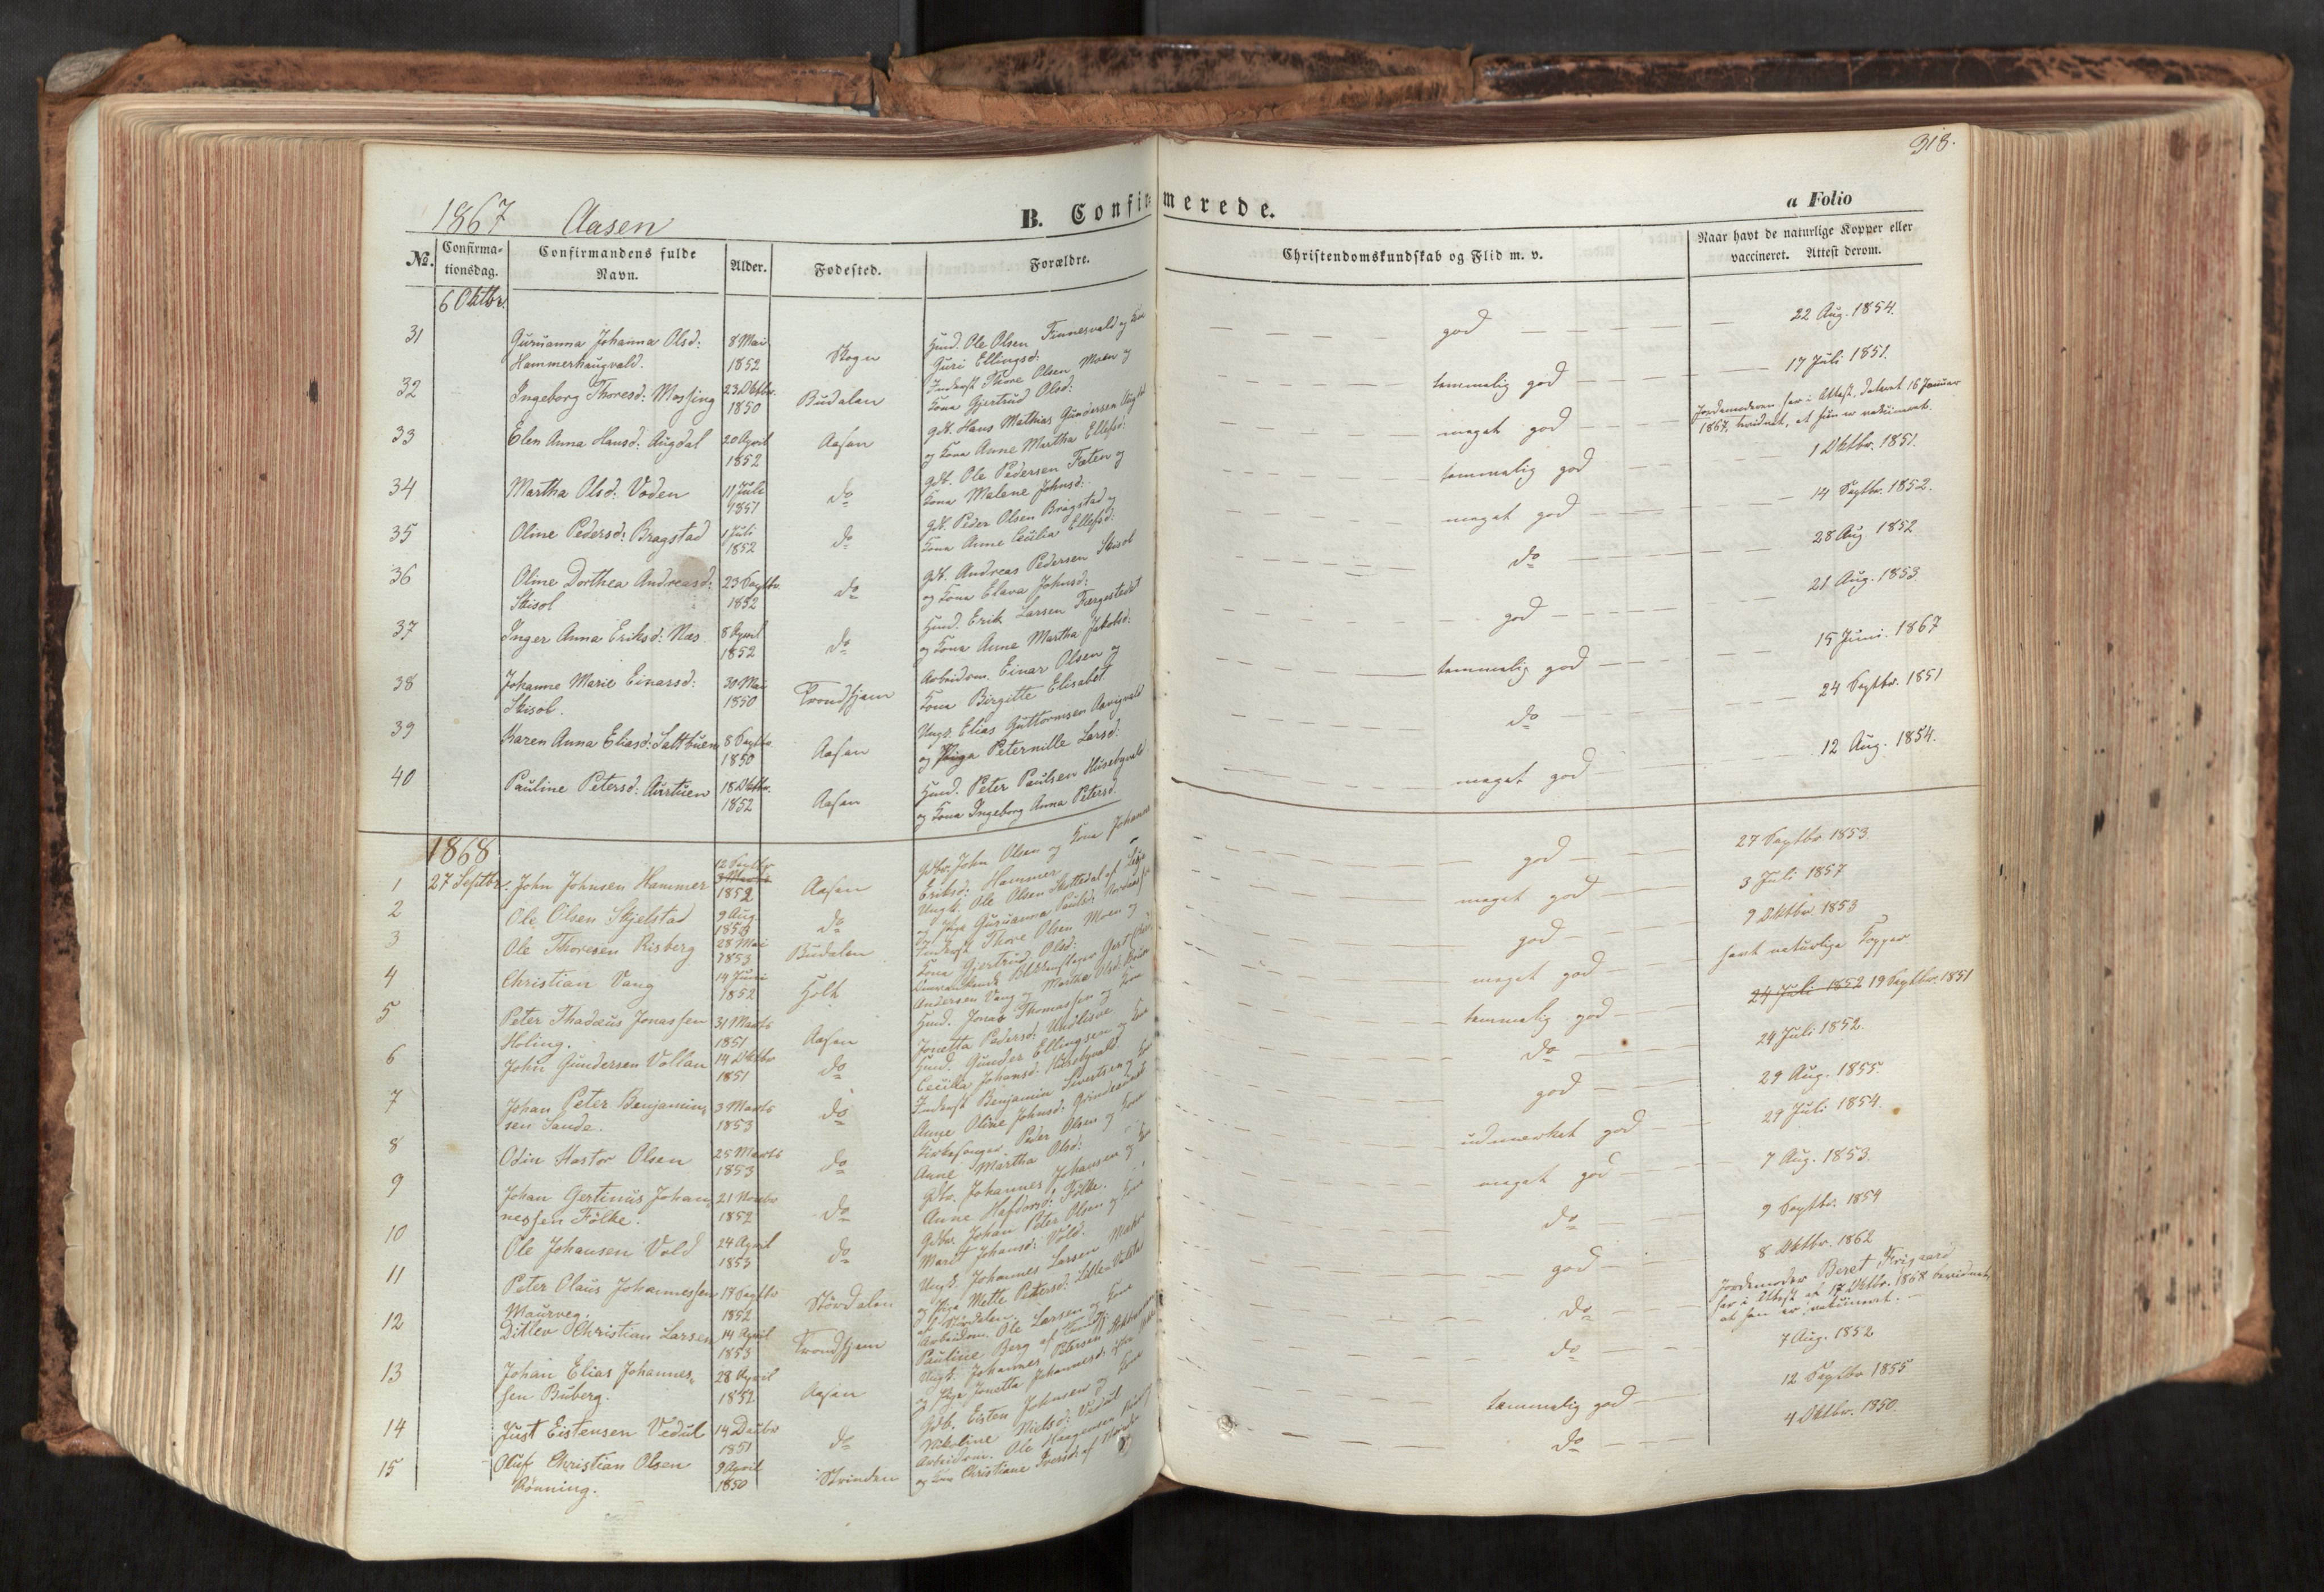 318.
1867 Aasen
B. Confirmerede.
a Folio
No. Confirma- tionsdag. Confirmandens fulde Navn. Alder. Fødested. Forældre. Christendomskundskab og Flid m. v. Naar havt de naturlige Kopper eller vaccineret. Attest derom.
6 Oktbr.
31 Gurianna Johanna Olsd: 8 Mai Skogn Husmd. Ole Olsen Finnesvald og Kone god 22 Aug. 1854.
Hammerhaugvald. 1852 Guri Ellingsd:
32 Ingeborg Thoresd: Mossing 23 Oktbr. Budalen Inderst Thore Olsen Moen og temmelig god 17 Juli 1851.
1850 Kone Gjertrud Olsd:
33 Elen Anna Hansd: Augdal 20 April Aasen Gdb. Hans Mathias Gundersen meget god Jordemoderen har i Attest, dateret 16 Januar
1852 og Kone Anne Martha Ellefsd: 1867, bevidnet, at hun er vaccineret.
34 Martha Olsd: Voden 11 Juli do Gdb. Ole Pedersen Fæten og temmelig god 1 Oktbr. 1851.
1851 Kone Malene Johnsd:
35 Oline Pedersd: Bragstad 1 Juli do Gdb. Peder Olsen Bragstad og meget god 14 Septbr. 1852.
1852 Kone Anne Cecilia Ellefsd:
36 Oline Dorthea Andreasd: 23 Septbr. do Gdb. Andreas Pedersen Skisol do 28 Aug. 1852
Skisol 1852 og Kone Elava Johnsd:
37 Inger Anna Eriksd: Næs 8 April do Husmd. Erik Larsen Færgestedet god 21 Aug. 1853
1852 og Kone Anne Martha Jakobsd:
38 Johanne Marie Einarsd: 30 Mai Trondhjem Arbeidsm. Einar Olsen og temmelig god 15 Juni 1867
Skisol. 1850 Kone Birgitte Elisabet
39 Karen Anna Eliasd: Saltbuen 8 Septbr. Aasen Ungk. Elias Guttormsen do 24 Septbr. 1851
1850 og Pige Peternille Larsd:
40 Pauline Petersd: Aurtuen 18 Oktbr. Aasen Husmd. Peter Paulsen Husebyvald meget god 12 Aug. 1854.
1852 og Kone Ingeborg Anna Petersd.
1868
27 Septbr.
1 John Johnsen Hammer 12 Septbr 1852 Aasen Gdbr. John Olsen og Kone Johanna god 27 Septbr 1853
Eriksd: Hammer
2 Ole Olsen Skjelstad 9 Aug. do Ungk. Ole Olsen meget god 3 Juli 1857
og Pige Gurianna Paulsd:
3 Ole Thoresen Risberg 28 Mai Budalen Inderst Thore Olsen Moen og god 9 Oktbr 1853
1853 Kone Gjertrud Olsd:
4 Christian Vang 14 Juni Holt meget god havt naturlige Kopper
1852 Andersen Vang og Martha Olsd:
5 Peter Thadæus Jonassen 31 Marts Aasen Husmd. Jonas Thomassen og Kone temmelig god 24 Juli 1852 19 Septbr. 1851
Holing. 1851 Jonetta Pedersd:
6 John Gundersen Vollan 14 Oktbr do Husmd. Gunder Ellingsen og Kone do 24 Juli 1852.
1851 Cecilia Johansd: Husebyvald.
7 Johan Peter Benjamin, 3 Marts do Inderst Benjamin Sivertsen og Kone god 29 Aug. 1855.
sen Sande. 1853 Anne Oline Johnsd:
8 Odin Hastor Olsen 25 Marts do Kirkesanger Peder Olsen og Kone udmærket god 29 Juli 1854.
1853 Anne Martha Olsd:
9 Johan Gertinus Johan, 21 Novbr do Gdbr. Johannes Johansen og Kone meget god 7 Aug. 1853.
nessen Fölke. 1852 Anne Hafdorsd: Fölke.
10 Ole Johansen Vold 24 April do Gdbr. Johan Peter Olsen og Kone do 9 Septbr. 1854
1853 Marit Johansd: Vold.
11 Peter Claus Johannessen 17 Septbr Størdalen Ungk. Johannes Larsen god 8 Oktbr. 1862
Maurveg. 1852 og Pige Mette Petersd: af Størdalen
12 Ditlev Christian Larsen 14 April Trondhjem Arbeidsm. Ole Larsen og Kone do Jordemoder Beret Krigaard
1853 Pauline Berg af har i Attest af 17 Oktbr. 1868 bevidnet
at han er vaccineret.
13 Johan Elias Johannes, 28 April Aasen Ungk. Johannes Petersen do 7 Aug. 1852
sen Buberg. 1852 og Pige Jonetta Johannesd:
14 Just Eistensen Vedul 14 Decbr do Gdb. Eisten Johnsen og Kone temmelig god 12 Septbr 1855
1851 Nikoline Nielsd: Vedul
15 Oluf Christian Olsen 9 April Strinden Arbeidsm. Ole Haagensen do 4 Oktbr. 1850
Rönning. 1850 og Kone Christiane Iversd: af